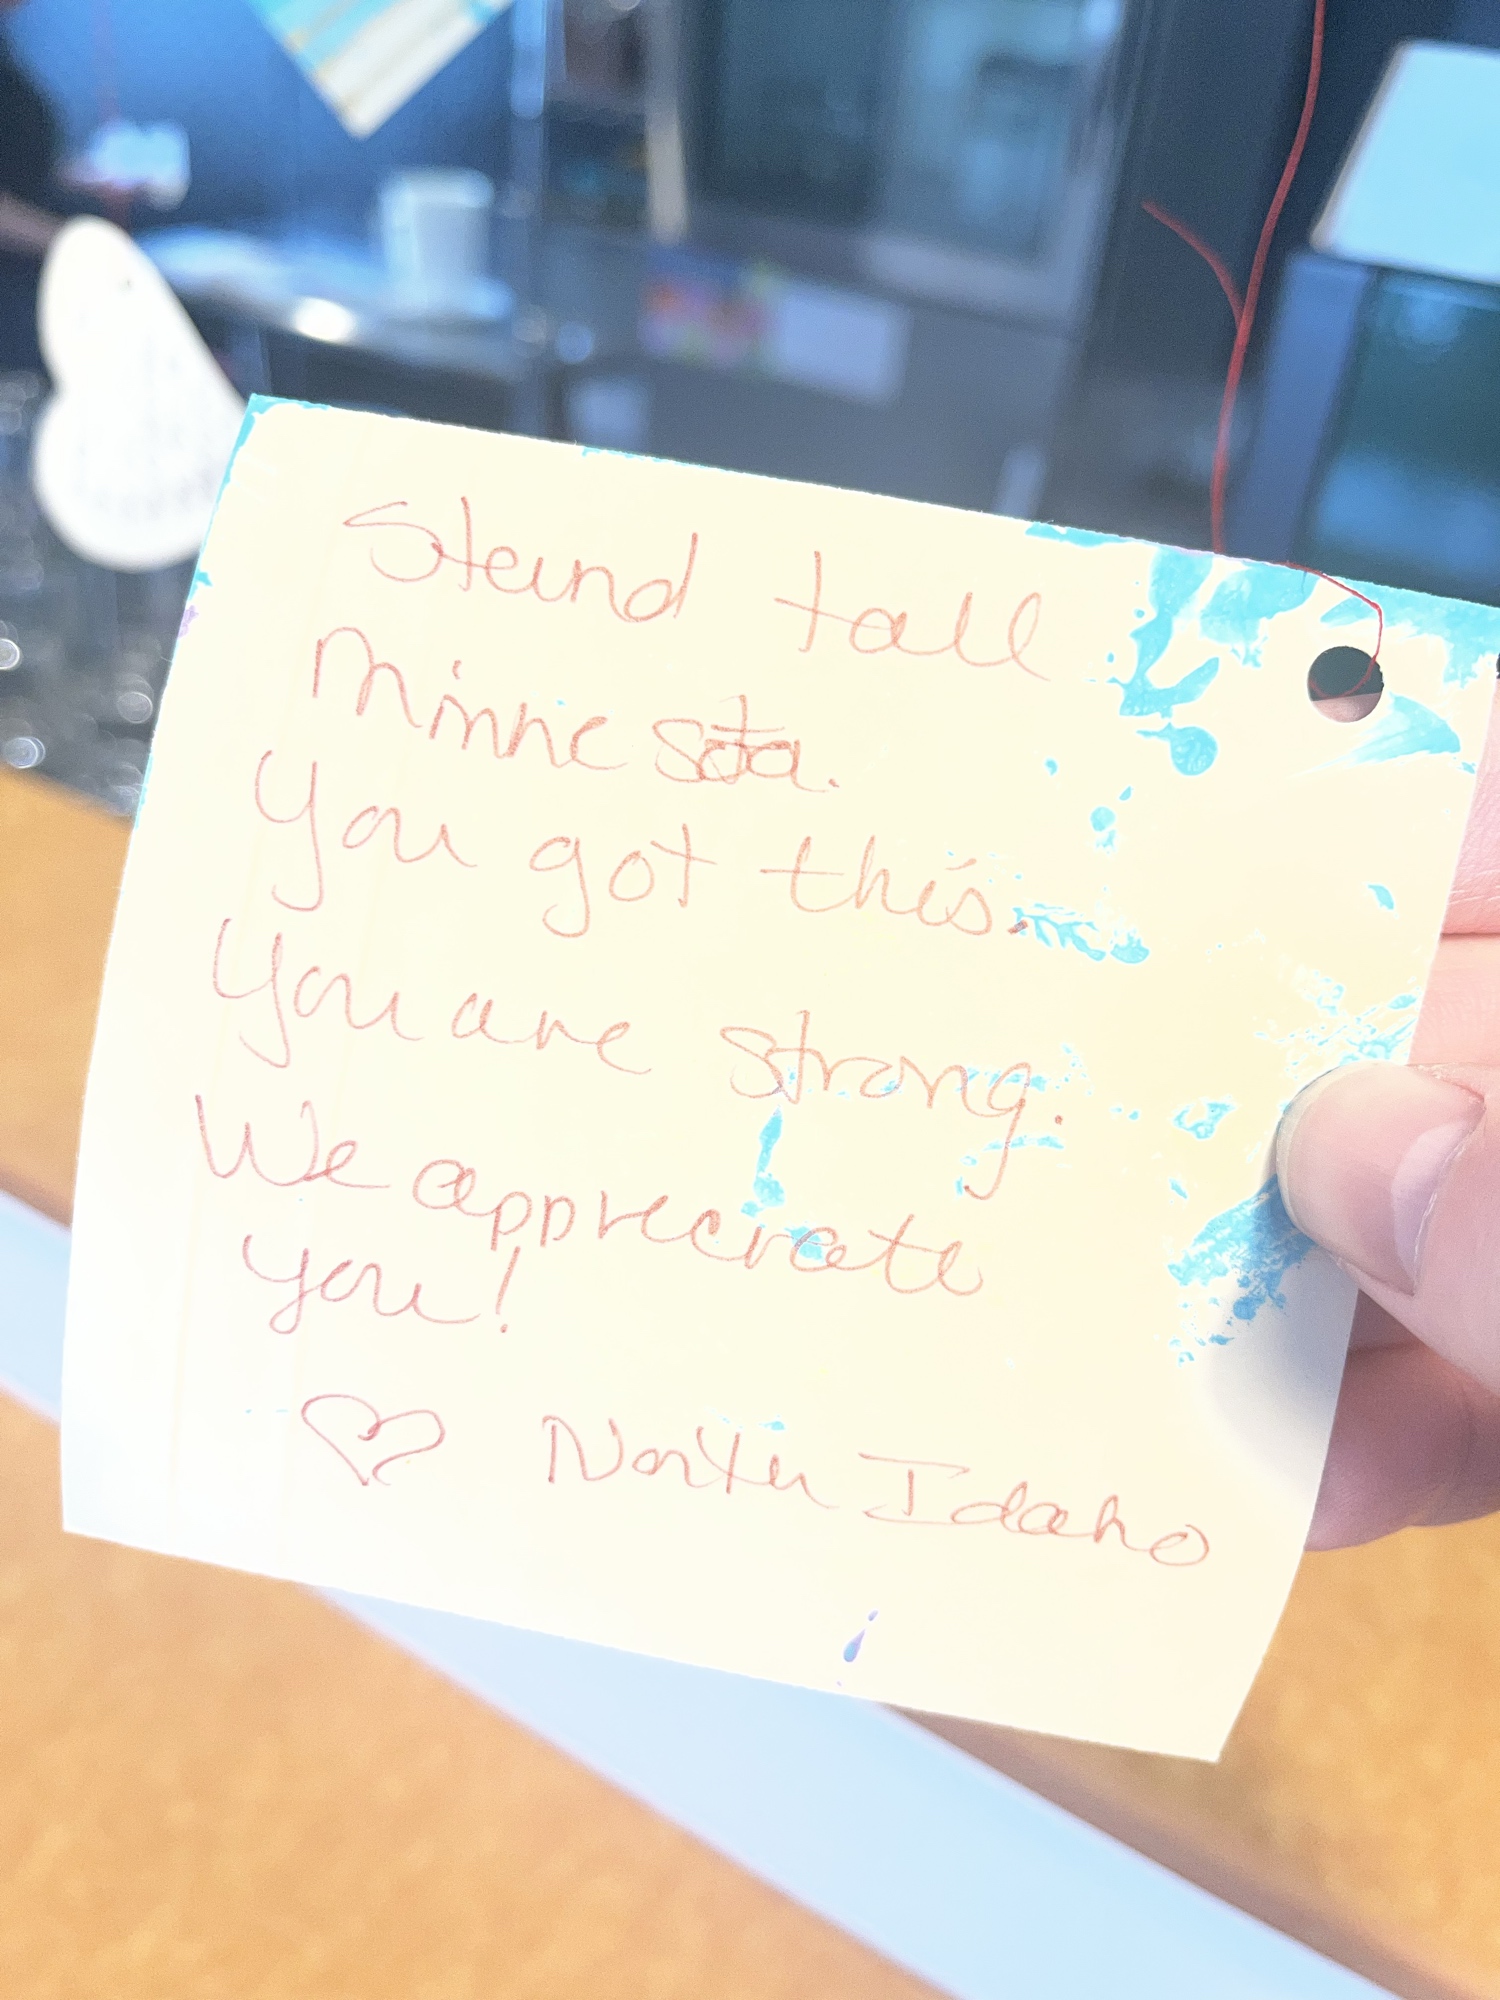 Stand tall
Minnesota.
You got this.
You are strong.
We appreciate
you!
♡ North Idaho